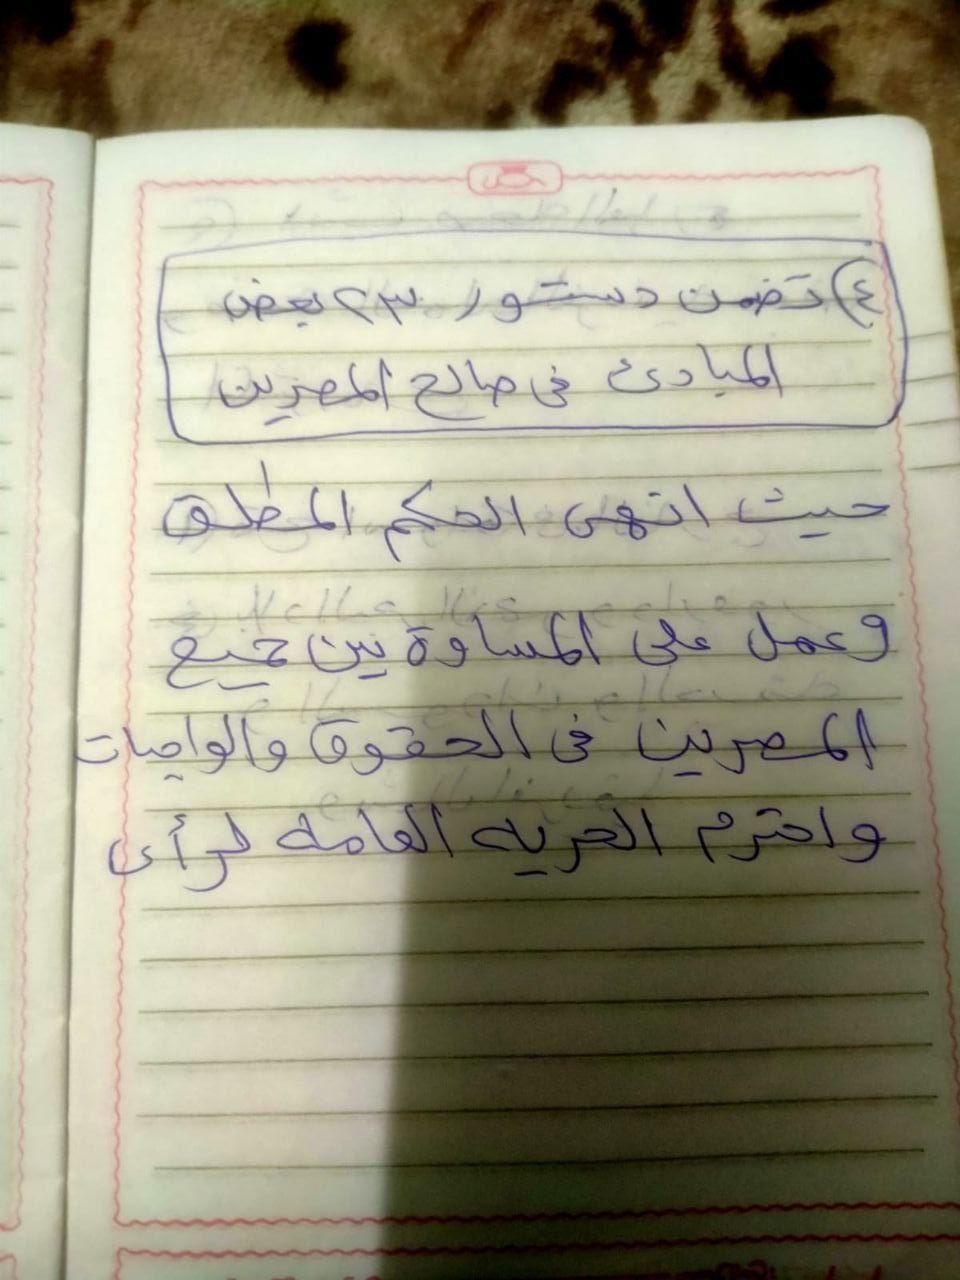 ٤) تضمن دستور ٢٣ بعض
المبادئ فى صالح المصرين
حيث انتهى الحكم المطلق
وعمل على المساوة بين جميع
المصرين فى الحقوق والواجبات
واحترم الحريه العامه لرأى